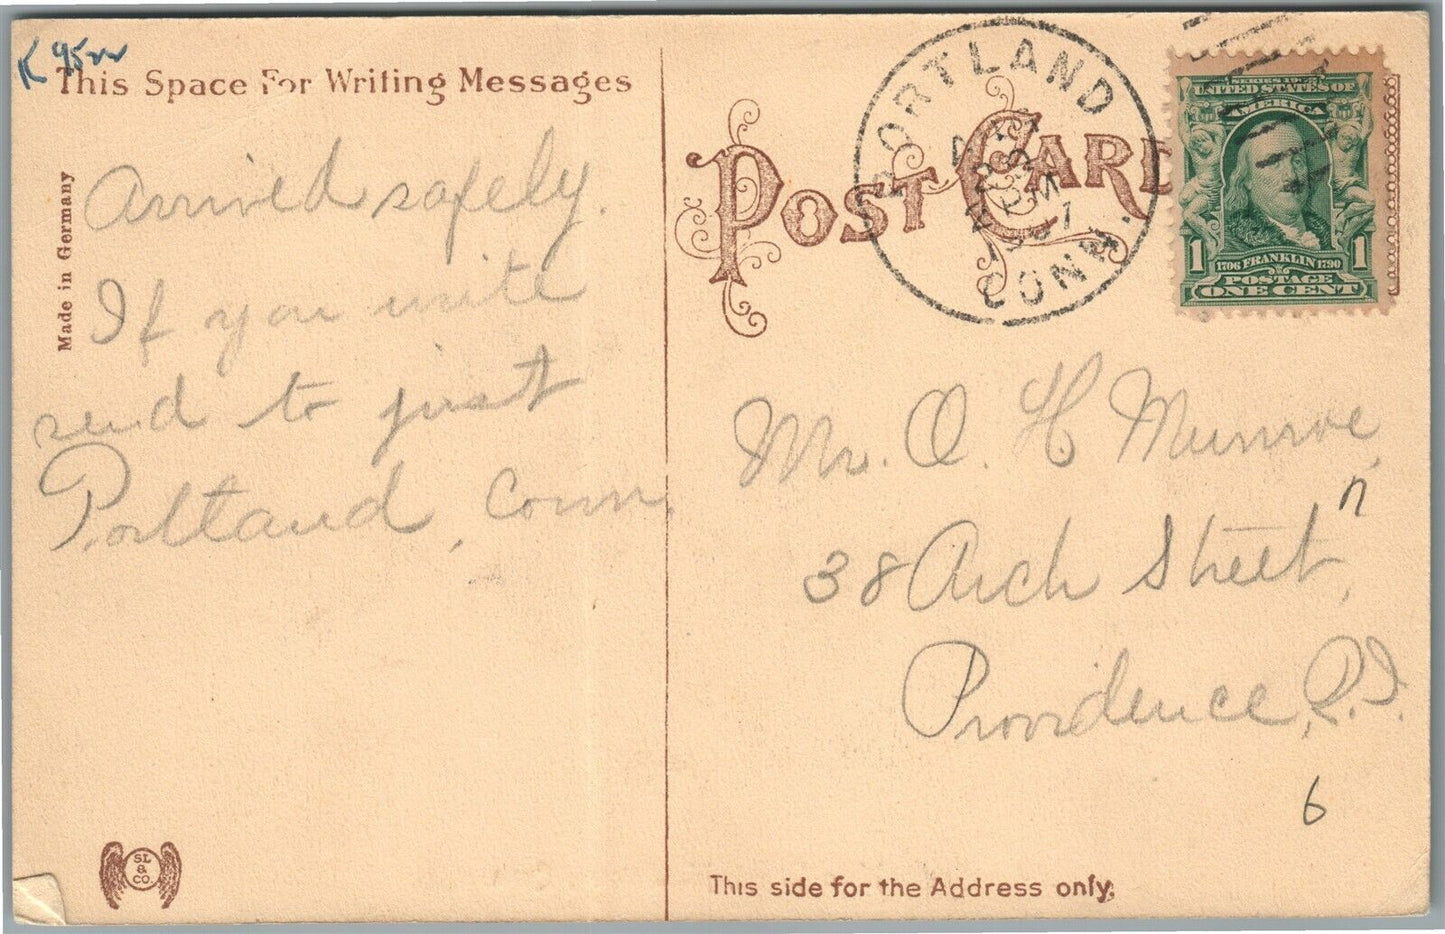 K 95
This Space For Writing Messages
Made in Germany
Arrived safely.
If you write
send to just
Portland, Conn.
SL
&
CO.
This side for the Address only.
POST CARD
PORTLAND
CONN.
SERIES 1902
UNITED STATES OF
AMERICA
1 1
1706 FRANKLIN 1790
POSTAGE
ONE CENT
Mr. O. H Munroe,
n
38 Arch Street,
Providence, R.I.
6